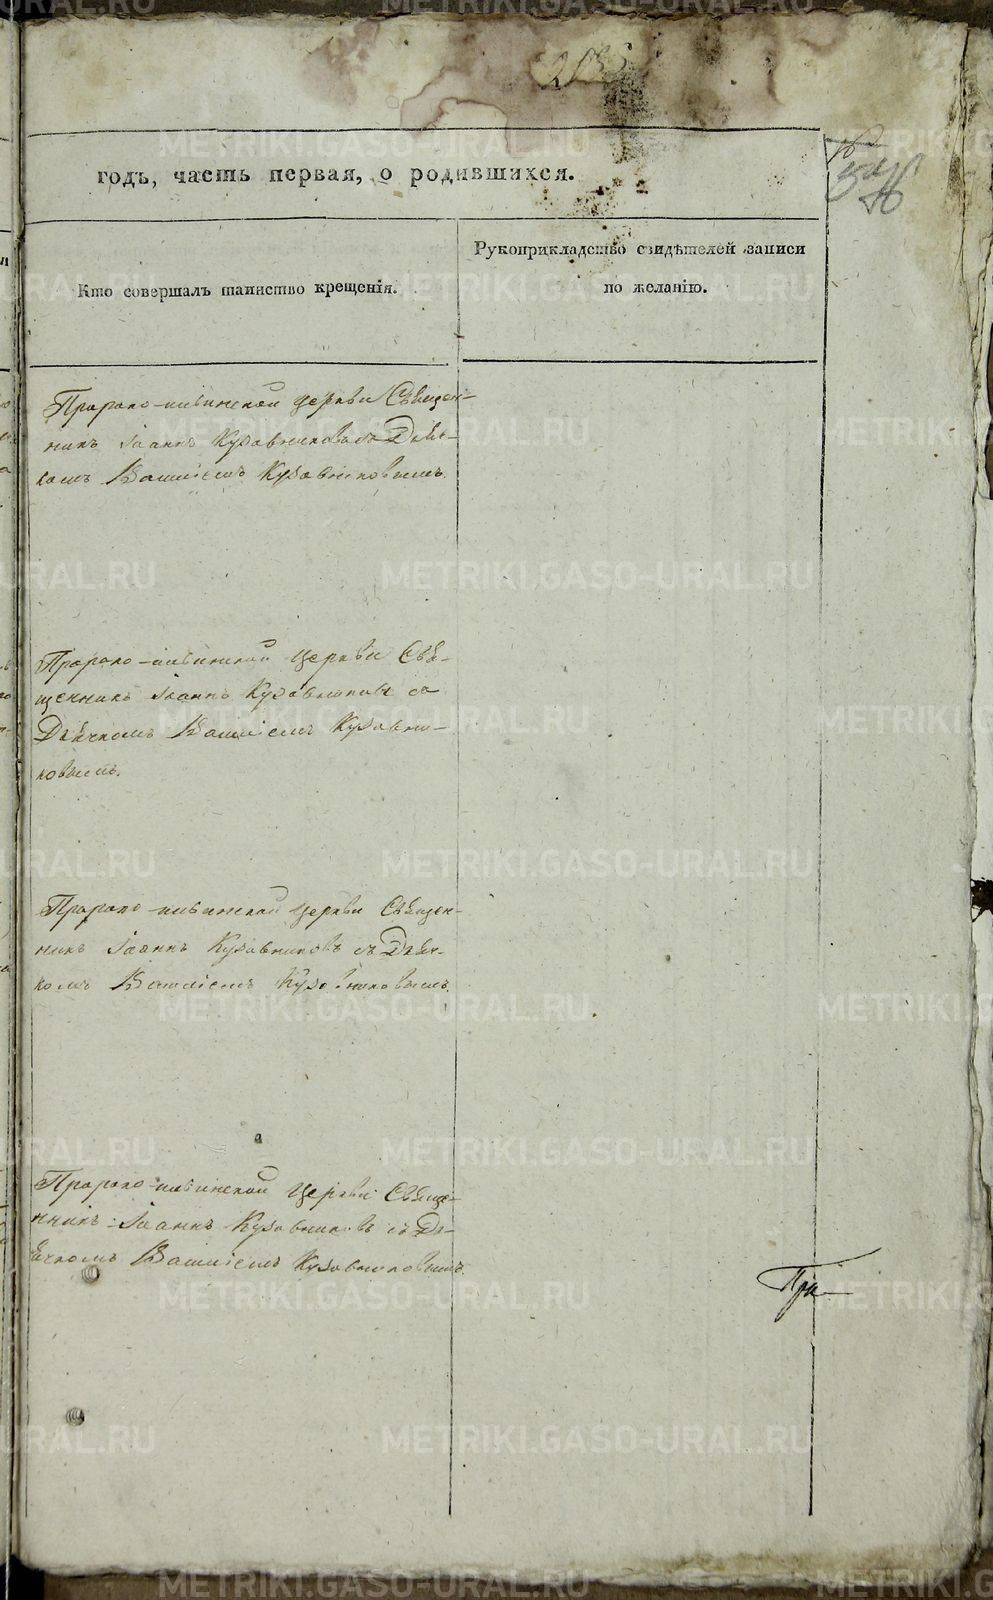 годъ, часть первая, о родившихся.
Кто совершалъ таинство крещенія.
Рукоприкладство свидѣтелей записи
по желанію.
Пророко-ильинской церкви Священ-
никъ Іоаннъ Кузовниковъ съ Дьяч-
комъ Василіемъ Кузовниковымъ.
Пророко-ильинской церкви Свя-
щенникъ Іоаннъ Кузовниковъ съ
Дьячкомъ Василіемъ Кузовни-
ковымъ.
Пророко-ильинской церкви Священ-
никъ Іоаннъ Кузовниковъ съ Дьяч-
комъ Василіемъ Кузовниковымъ.
Пророко-ильинской церкви Свяще-
нникъ Іоаннъ Кузовниковъ съ Дь-
ячкомъ Василіемъ Кузовниковымъ.
METRIKI.GASO-URAL.RU